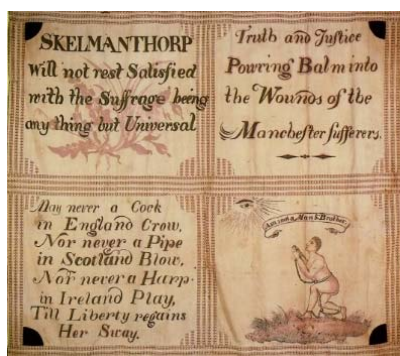 SKELMANTHORP
Will not rest Satisfied
with the Suffrage being
any thing but Universal
Truth and Justice
Powring Balm into
the Wounds of the
Manchester sufferers.
May never a Cock
in England Crow,
Nor never a Pipe
in Scotland Blow,
Nor never a Harp
in Ireland Play,
Till Liberty regains
Her Sway.
a Man & Brother